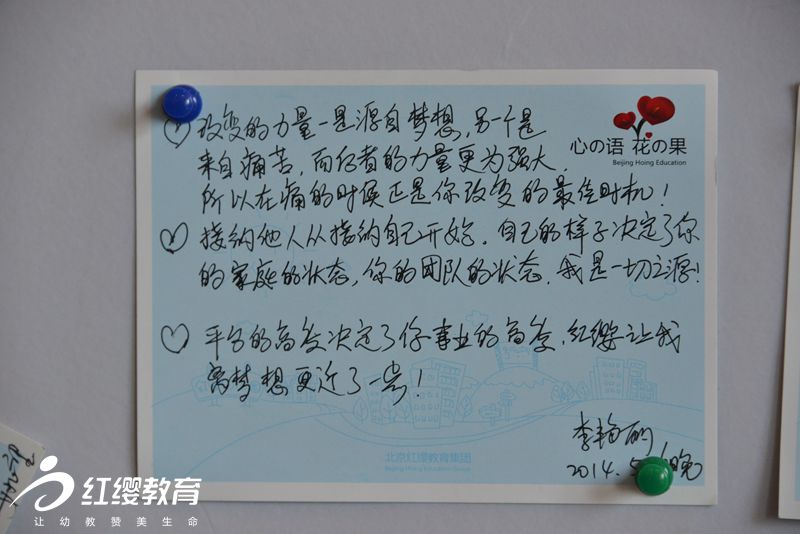 心の语 花の果
Beijing Hoing Education
改变的力量一是源自梦想，另一个是
来自痛苦，而后者的力量更为强大，
所以在痛的时候正是你改变的最佳时机！
接纳他人从接纳自己开始，自己的样子决定了你
的家庭的状态，你的团队的状态，我是一切之源！
平台的高度决定了你事业的高度，红缨让我
离梦想更近了一步！
李艳丽
2014.5 晚
北京红缨教育集团
Beijing Hoing Education Group
红缨教育
让幼教赞美生命